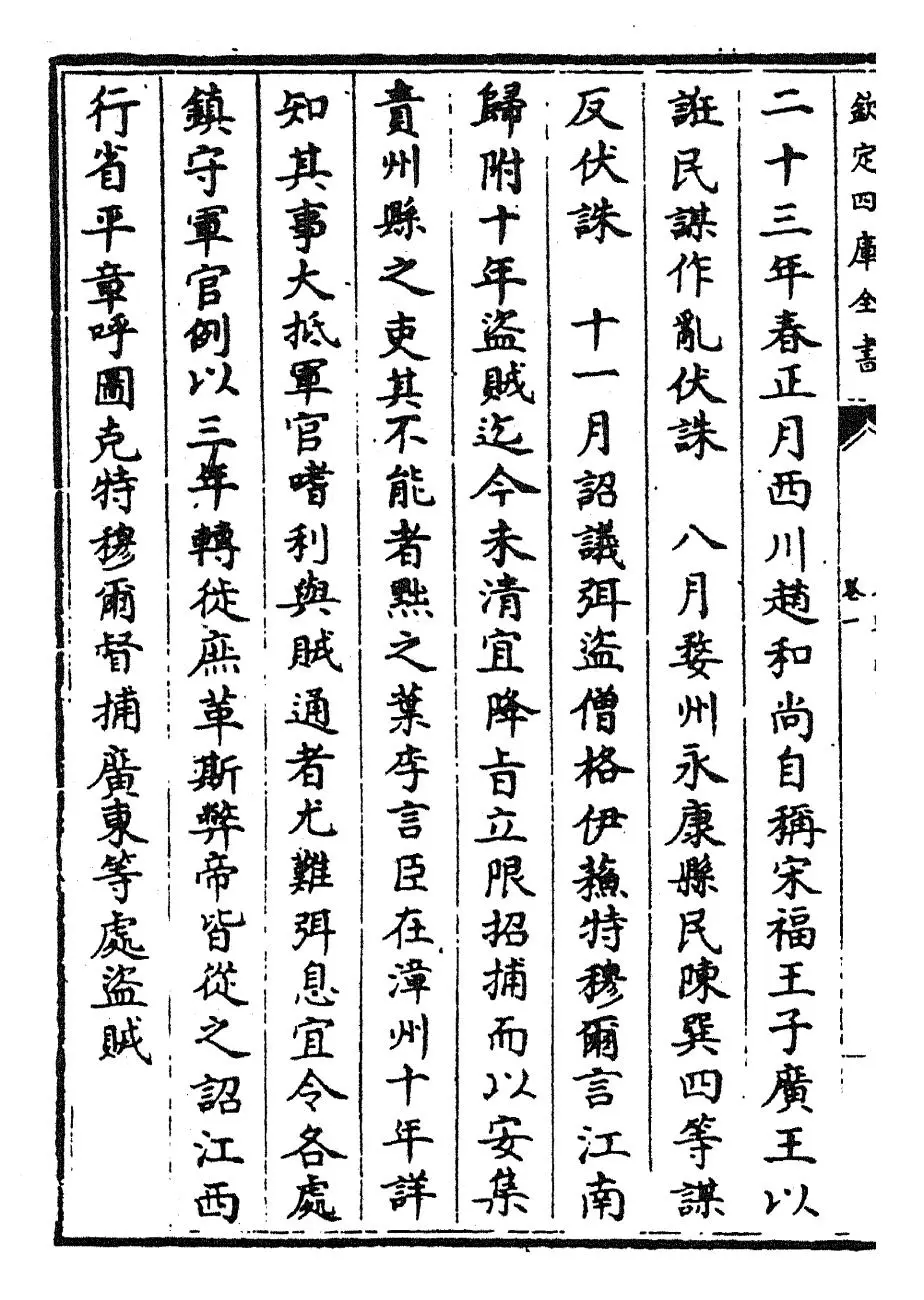 欽定四庫全書
卷一
二十三年春正月西川趙和尚自稱宋福王子廣王以
誑民謀作亂伏誅　八月婺州永康縣民陳巽四等謀
反伏誅　十一月詔議弭盜僧格伊蘓特穆爾言江南
歸附十年盜賊迄今未清宜降旨立限招捕而以安集
責州縣之吏其不能者黜之葉李言臣在漳州十年詳
知其事大抵軍官嗜利與賊通者尤難弭息宜令各處
鎮守軍官例以三年轉徙庶革斯弊帝皆從之詔江西
行省平章呼圖克特穆爾督捕廣東等處盜賊